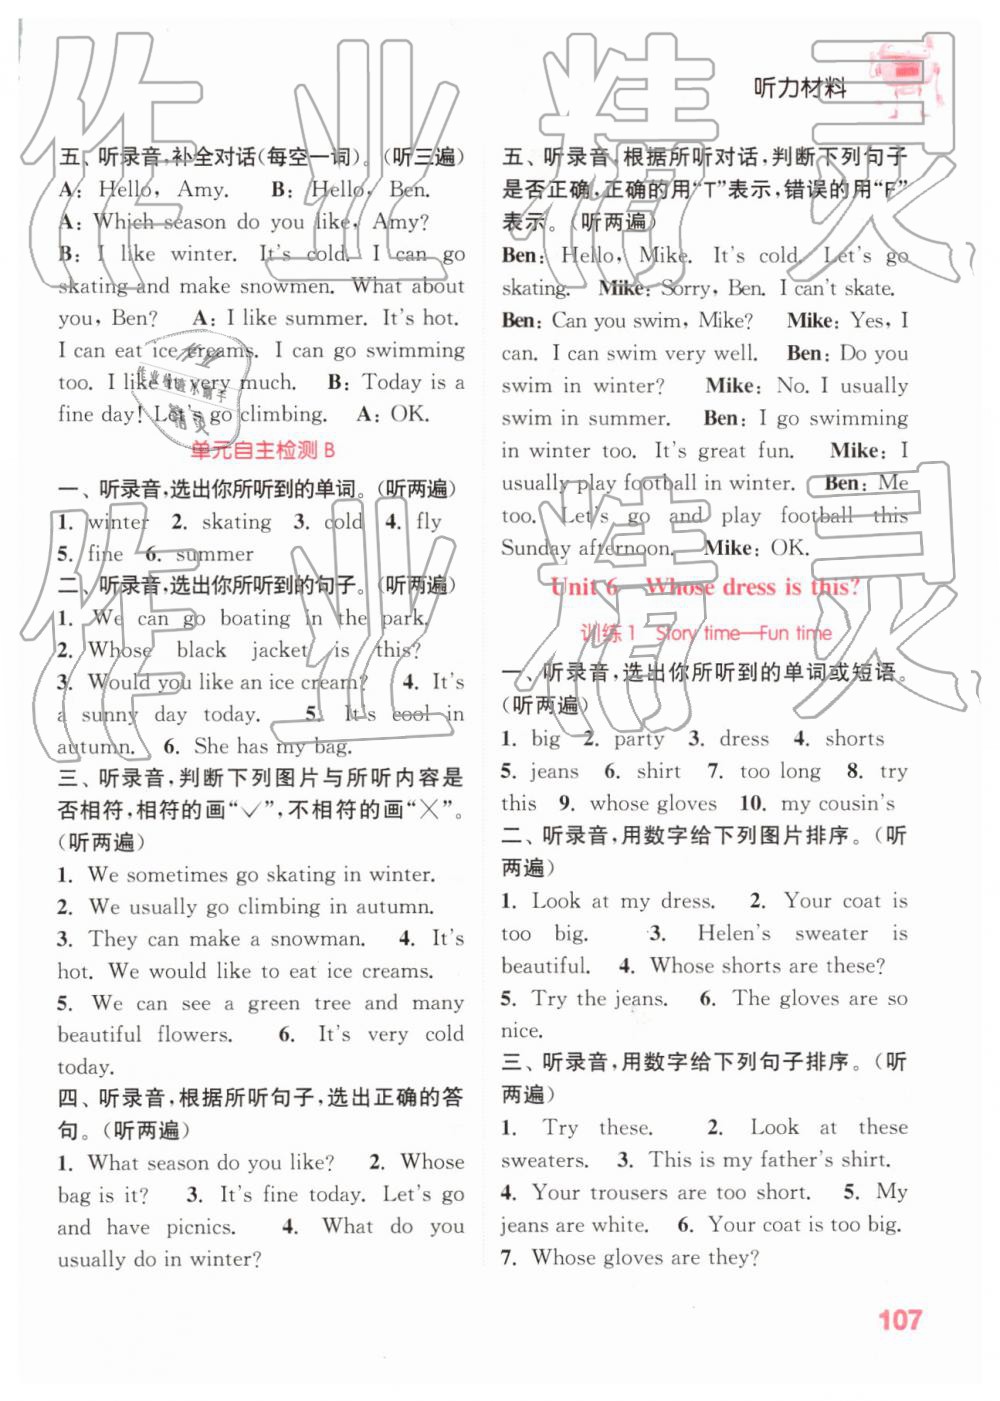 听力材料
五、听录音,补全对话(每空一词)。(听三遍)
A: Hello, Amy. B: Hello, Ben.
A: Which season do you like, Amy?
B: I like winter. It's cold. I can go
skating and make snowmen. What about
you, Ben? A: I like summer. It's hot.
I can eat ice creams. I can go swimming
too. I like it very much. B: Today is a
fine day! Let's go climbing. A: OK.
单元自主检测 B
一、听录音,选出你所听到的单词。(听两遍)
1. winter 2. skating 3. cold 4. fly
5. fine 6. summer
二、听录音,选出你所听到的句子。(听两遍)
1. We can go boating in the park.
2. Whose black jacket is this?
3. Would you like an ice cream? 4. It's
a sunny day today. 5. It's cool in
autumn. 6. She has my bag.
三、听录音,判断下列图片与所听内容是
否相符,相符的画“✓”,不相符的画“✕”。
(听两遍)
1. We sometimes go skating in winter.
2. We usually go climbing in autumn.
3. They can make a snowman. 4. It's
hot. We would like to eat ice creams.
5. We can see a green tree and many
beautiful flowers. 6. It's very cold
today.
四、听录音,根据所听句子,选出正确的答
句。(听两遍)
1. What season do you like? 2. Whose
bag is it? 3. It's fine today. Let's go
and have picnics. 4. What do you
usually do in winter?
五、听录音,根据所听对话,判断下列句子
是否正确,正确的用“T”表示,错误的用“F”
表示。(听两遍)
Ben: Hello, Mike. It's cold. Let's go
skating. Mike: Sorry, Ben. I can't skate.
Ben: Can you swim, Mike? Mike: Yes, I
can. I can swim very well. Ben: Do you
swim in winter? Mike: No. I usually
swim in summer. Ben: I go swimming
in winter too. It's great fun. Mike: I
usually play football in winter. Ben: Me
too. Let's go and play football this
Sunday afternoon. Mike: OK.
Unit 6 Whose dress is this?
训练 1 Story time—Fun time
一、听录音,选出你所听到的单词或短语。
(听两遍)
1. big 2. party 3. dress 4. shorts
5. jeans 6. shirt 7. too long 8. try
this 9. whose gloves 10. my cousin's
二、听录音,用数字给下列图片排序。(听
两遍)
1. Look at my dress. 2. Your coat is
too big. 3. Helen's sweater is
beautiful. 4. Whose shorts are these?
5. Try the jeans. 6. The gloves are so
nice.
三、听录音,用数字给下列句子排序。(听
两遍)
1. Try these. 2. Look at these
sweaters. 3. This is my father's shirt.
4. Your trousers are too short. 5. My
jeans are white. 6. Your coat is too big.
7. Whose gloves are they?
107
作业精灵
作业精灵